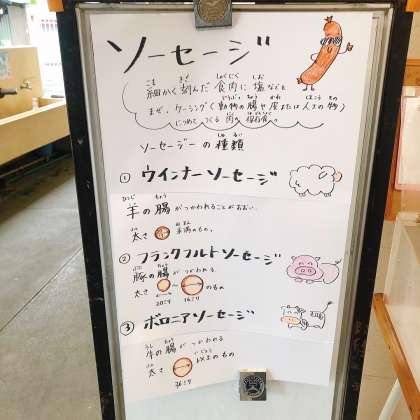 ソーセージ
細かく刻んだ食肉に塩などと
まぜ、ケーシング(動物の腸や皮または人工の物)
につめてつくる肉の保存食。
ソーセージーの種類
① ウインナーソーセージ
羊の腸がつかわれることがおおい。
太さ 未満のもの。
② フランクフルトソーセージ
豚の腸がつかわれる
太さ 〜 のもの
20ミリ 36ミリ
③ ボロニアソーセージ
牛の腸がつかわれる
太さ 以上のもの
36ミリ